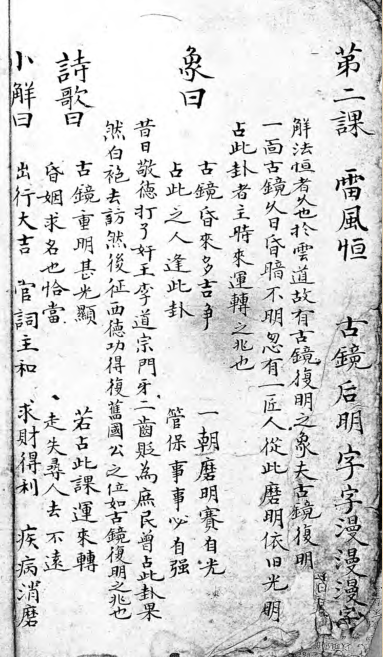 第二課 雷風恒 古鏡后明字字漫漫漫字
解法恒者久也於雲道故有古鏡復明之象夫古鏡復明
一面古鏡久日昏暗不明忽有一匠人從此磨明依旧光明
占此卦者主時來運轉之兆也
象曰 古鏡昏來多吉爭 一朝磨明賽自光
占此之人逢此卦 管保事事必自强
昔日敬德打了奸王李道宗門牙二齒貶為庶民曾占此卦果
然白袍去訪然後征西德功得復舊國公之位如古鏡復明之兆也
詩歌曰 古鏡重明甚光顯 若占此課運來轉
昏姻求名也恰當 走失尋人去不遠
小解曰 出行大吉 官詞主和 求財得利 疾病消磨